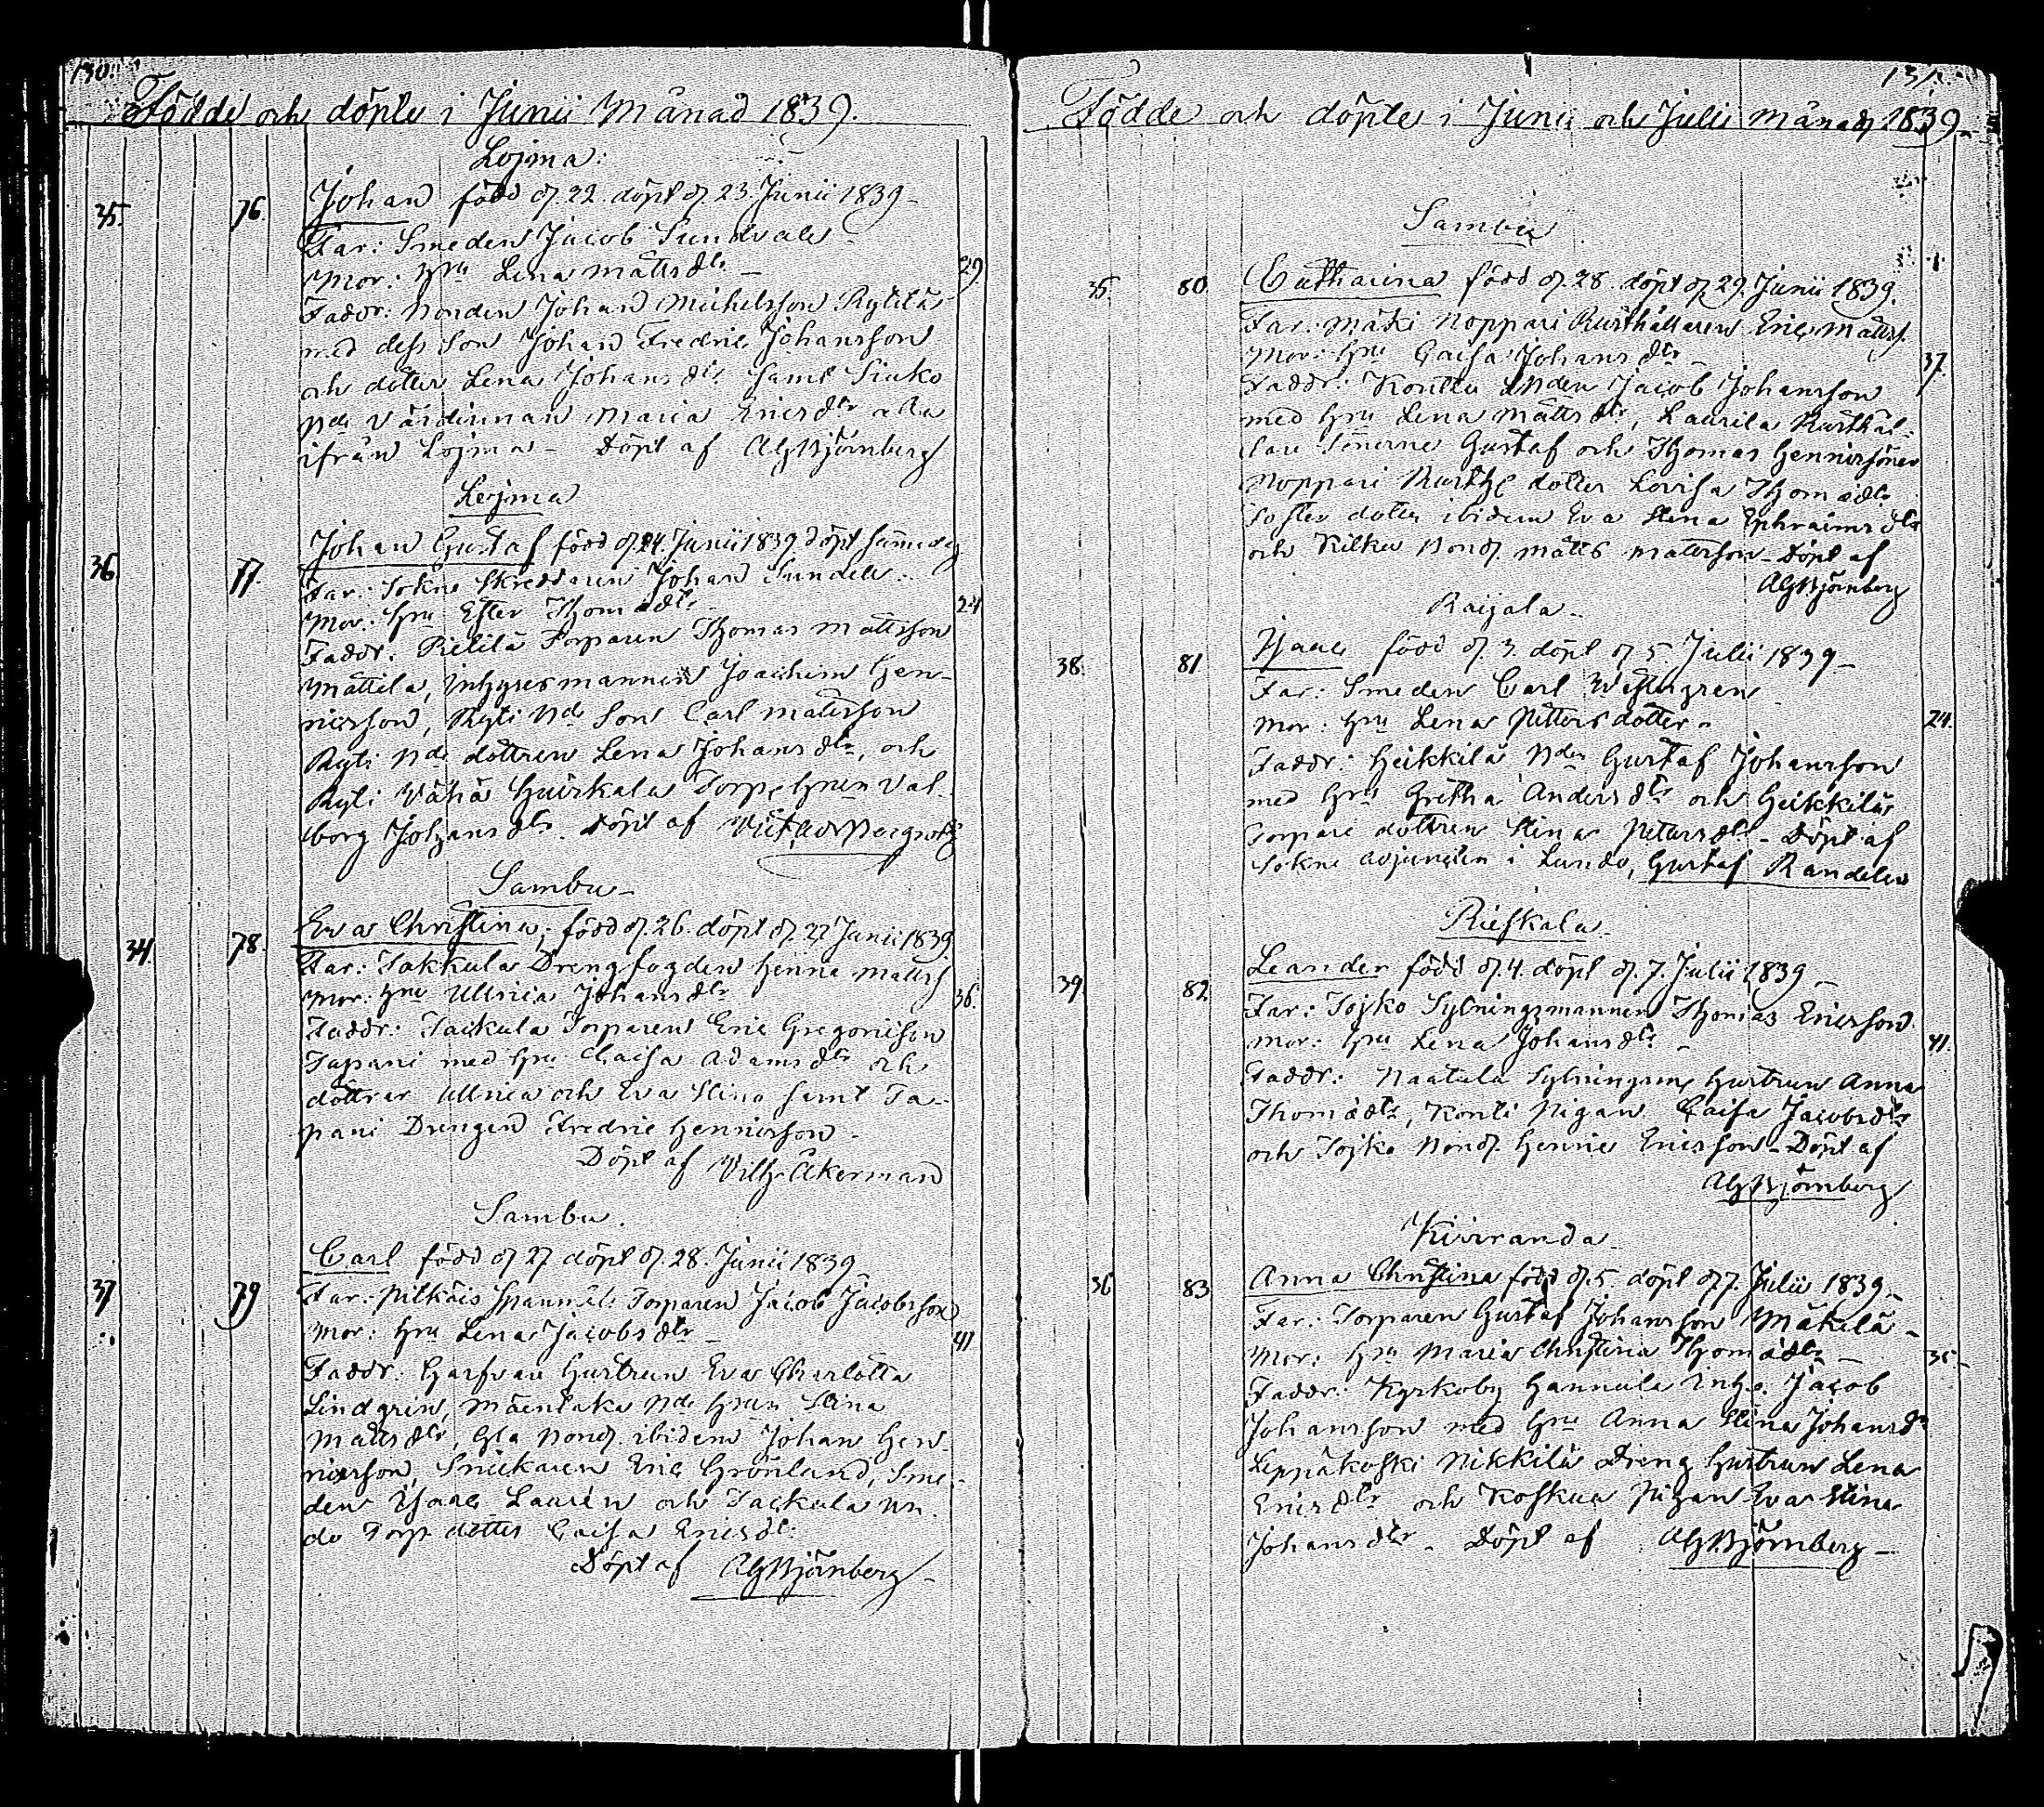 130.
Födde och döpte i Junii Månad 1839.
Lojma:
35. 76. Johan född d. 22. döpt d. 23. Junii 1839 –
Far: Smeden Jacob Sundvall –
Mor: Hru Lena Mattsdtr – 29.
Faddr: Bonden Johan Michelsson Rytilä
med dess Son Johan Fredric Johansson
och dotter Lena Johansdtr samt
Värdinnan Maria Ericsdtr alla
ifrån Lojma – Döpt af AGBjörnberg
Lojma
36 77. Johan Gustaf född d. 24. Junii 1839 döpt samma dag
Far: Sokne Skreddaren Johan Sundell.
Mor: Hru Ester Thomædtr – 24
Faddr: Torparen Thomas Mattsson
Mattila, Inhysesmannen Joachim Hen-
ricsson, Ryti Bde Son Carl Mattsson
Ryti Bde dottren Lena Johansdtr, och
Ryti Vähä Torp Hrun Val-
borg Johansdtr. Döpt af
Sambu –
34. 78. Eva Christina, född d. 26. döpt d. 27 Junii 1839.
Far: Takkula Drengfogden Henric Mattss
Mor: Hru Ullrica Johansdtr 36.
Faddr: Tackula Torparen Eric Gregorisson
Tapani med Hru Caisa Adamsdtr och
döttrar Ullrica och Eva Stina samt Ta-
pani Drengen Fredric Henricsson –
Döpt af Vilh. Åkerman
Sambu.
37 79 Carl född d. 27 döpt d. 28. Junii 1839
Far: Pitkäis Torparen Jacob Jacobsson
Mor: Hru Lena Jacobsdtr – 41
Faddr: Hustrun Eva Charlotta
Lindgrén, Mäentaka Bde Hrun Stina
Mattsdtr, Gla Bond. ibidem Johan Hen-
ricsson, Snickaren Eric Grönlund, Sme-
den Isaac Laurén och Tackula
Torp dotter Caisa Ericsdtr
Döpt af AGBjörnberg –
131.
Födde och döpte i Junii och Julii månad 1839 –
Sambu
35. 80 Catharina född d. 28. döpt d. 29. Junii 1839.
Far: Mäki Noppari Rusthållaren Eric Mattss.
Mor: Hru Caisa Johansdtr – 37.
Faddr: Konttu Bnden Jacob Johansson
med Hru Lena Mattsdtr, Laurila Rusthål-
lare Sönerne Gustaf och Thomas Henricsöner
Noppari Rusth dotter Lovisa Thomædtr
Syster dotter ibidem Eva Stina Ephraimsdtr
och Kilkku Bond. Matts Mattsson – Döpt af
AGBjörnberg
Raijala –
38. 81 Isaac född d. 3. döpt d. 5. Julii 1839 –
Far: Smeden Carl Westergren
Mor: Hru Lena Pettersdotter – 24.
Faddr: Heikkilä Bden Gustaf Johansson
med Hru Gretha Andersdtr och Heikkilä
Torpare dottren Stina Petersdtr – Döpt af
Sokne adjuncten i Lundo, Gustaf Randelin
Rieskala.
39. 82. Leander född d. 4. döpt d. 7. Julii 1839 –
Far: Tojko Sytningsmannen Thomas Ericsson
Mor: Hru Lena Johansdtr – 41.
Faddr: Naatula Sytningsm Hustrun Anna
Thomædtr, Kontti Pigan Caisa Jacobsdtr
och Tojko Bond. Henric Ericsson – Döpt af
AGBjörnberg
Kivranda –
36 83 Anna Christina född d. 5. döpt d. 7. Julii 1839 –
Far: Torparen Gustaf Johansson Mäkilä –
Mor: Hru Maria Christina Thomædtr – 35 –
Faddr: Kyrkoby Hannula Inh. Jacob
Johansson med Hru Anna Stina Johansdr
Leppäkoski Nikkilä Dreng Hustrun Lena
Ericsdtr och Koskua Pigan Eva Stina
Johansdtr – Döpt af AGBjörnberg –